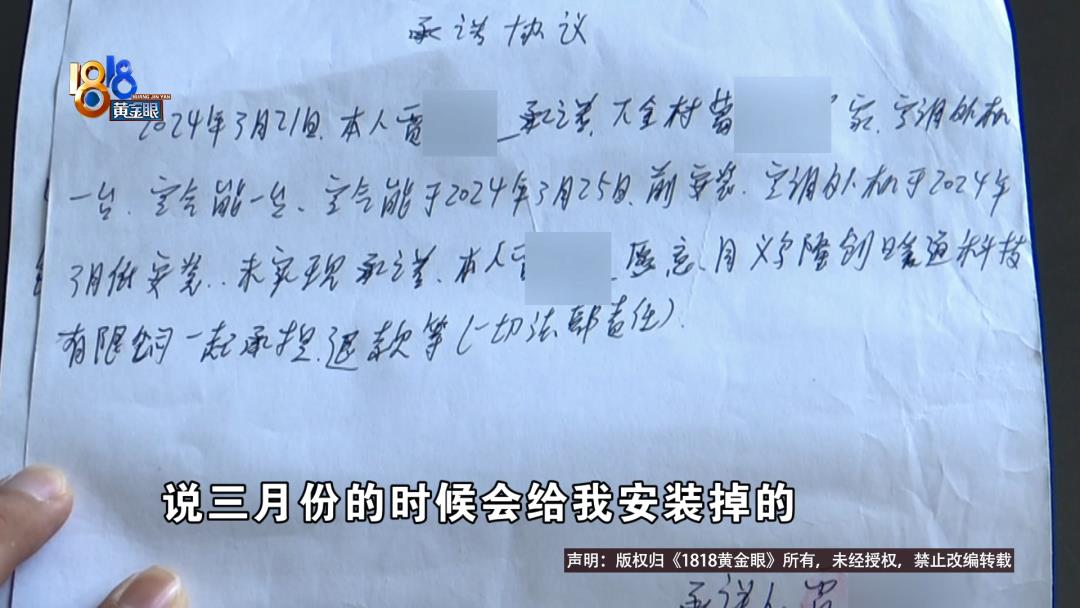 承诺协议
1818
HUANG JIN YAN
黄金眼
2024年3月21日.本人贾 承诺.大全村 家.空调外机
一台.空气能一台、空气能于2024年3月25日.前安装.空调外机于2024年
3月低安装..未实现承诺.本人贾 愿意、同义乌隆创暖通科技
有限公司一起承担.退款等(一切法郎责任).
说三月份的时候会给我安装掉的
声明：版权归《1818黄金眼》所有，未经授权，禁止改编转载
承诺人